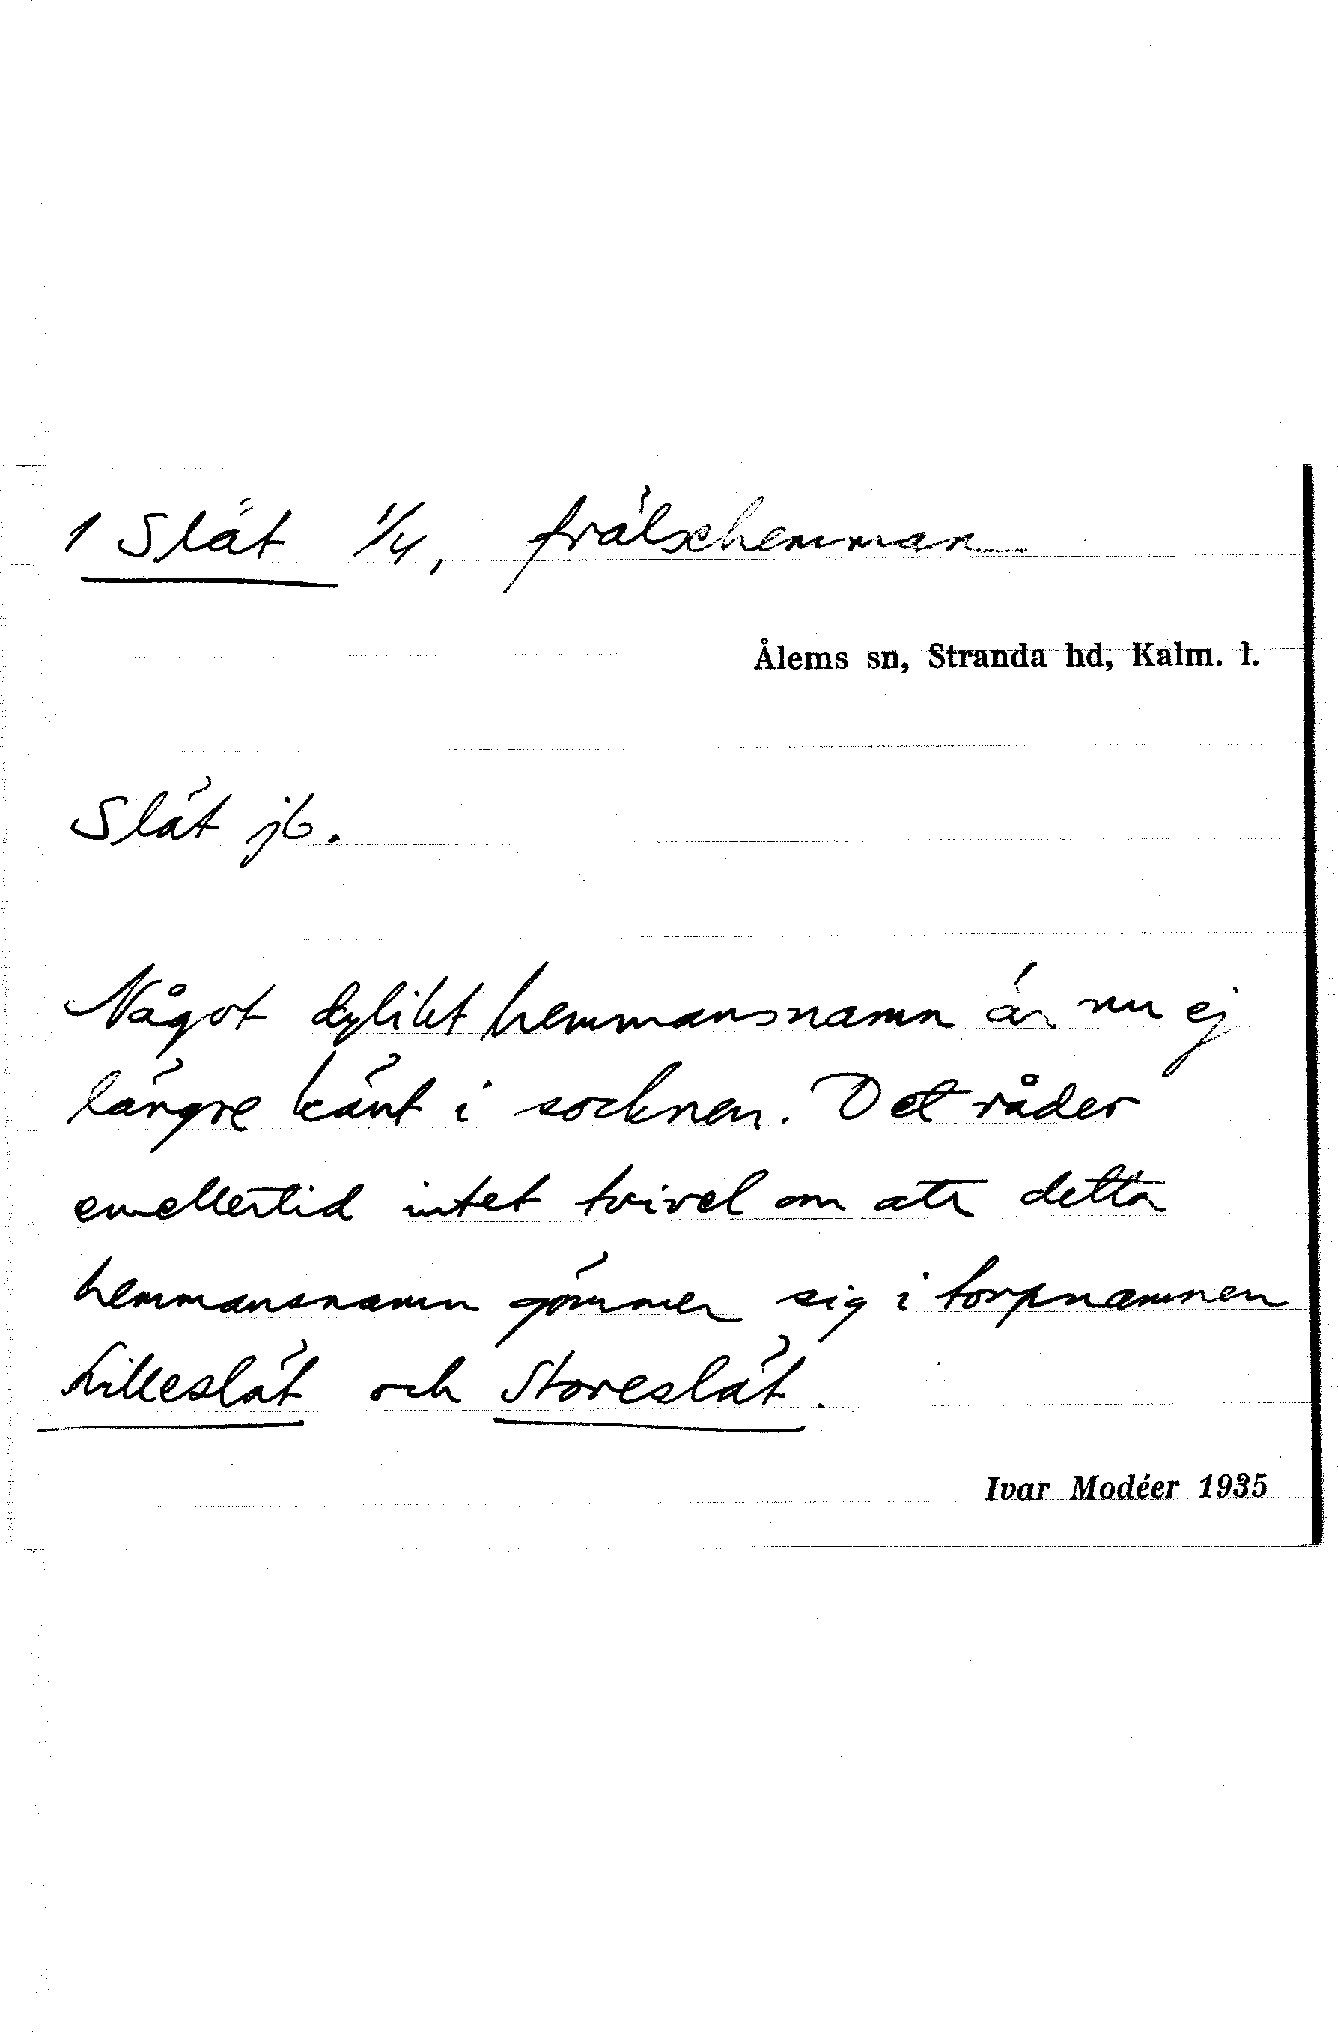 1 Slät 1/4, frälsehemman
Ålems sn, Stranda hd, Kalm. l.
Slät jb.
Något dylikt hemmansnamn är nu ej
längre känt i socknen. Det råder
emellertid intet tvivel om att detta
hemmansnamn gömmer sig i torpnamnen
Lilleslät och Storeslät.
Ivar Modéer 1935